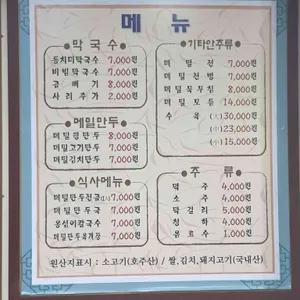 메 뉴
막 국 수
동치미막국수 7,000원
비빔막국수 7,000원
곱빼기 8,000원
사리추가 2,000원
메밀만두
메밀찐만두 8,000원
메밀고기만두 7,000원
메밀김치만두 7,000원
식사메뉴
메밀만두전골(1人) 7,000원
메밀만두국 7,000원
옹심이칼국수 7,000원
메밀만두육개장 7,000원
기타안주류
메밀전 7,000원
메밀전병 7,000원
메밀묵무침 8,000원
메밀모듬 14,000원
수육 (大) 30,000원
(中)23,000원
(小)15,000원
주 류
맥주 4,000원
소주 4,000원
막걸리 5,000원
청하 4,000원
음료수 1,000원
원산지표시 : 소고기(호주산) / 쌀,김치,돼지고기(국내산)